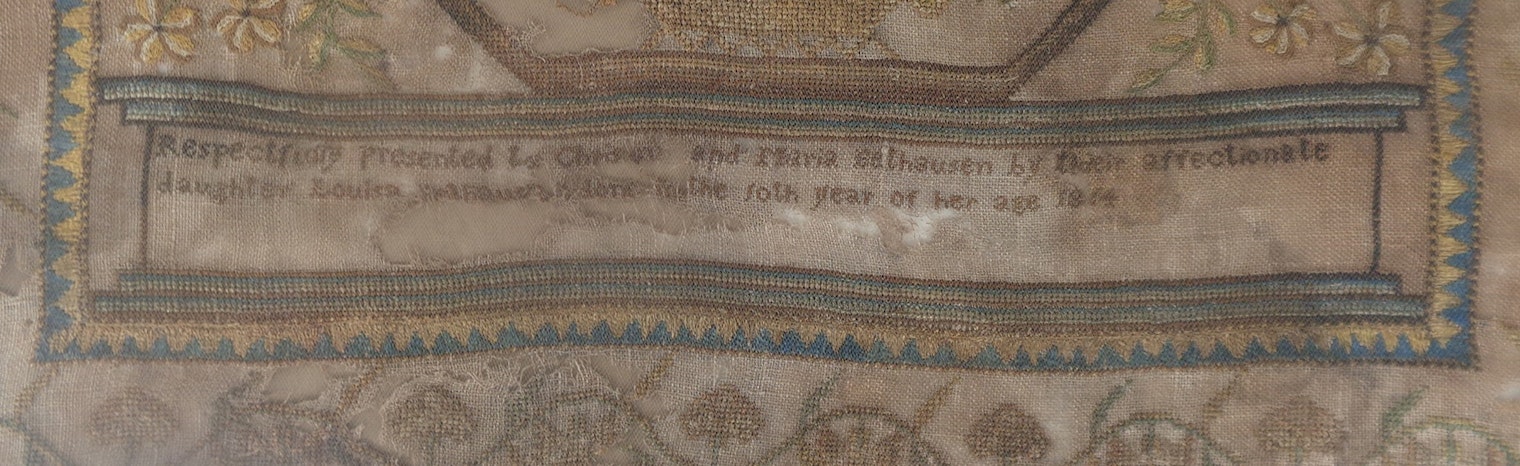 Respectfully presented to and Maria by their affectionate
daughter Louisa in the 10th year of her age